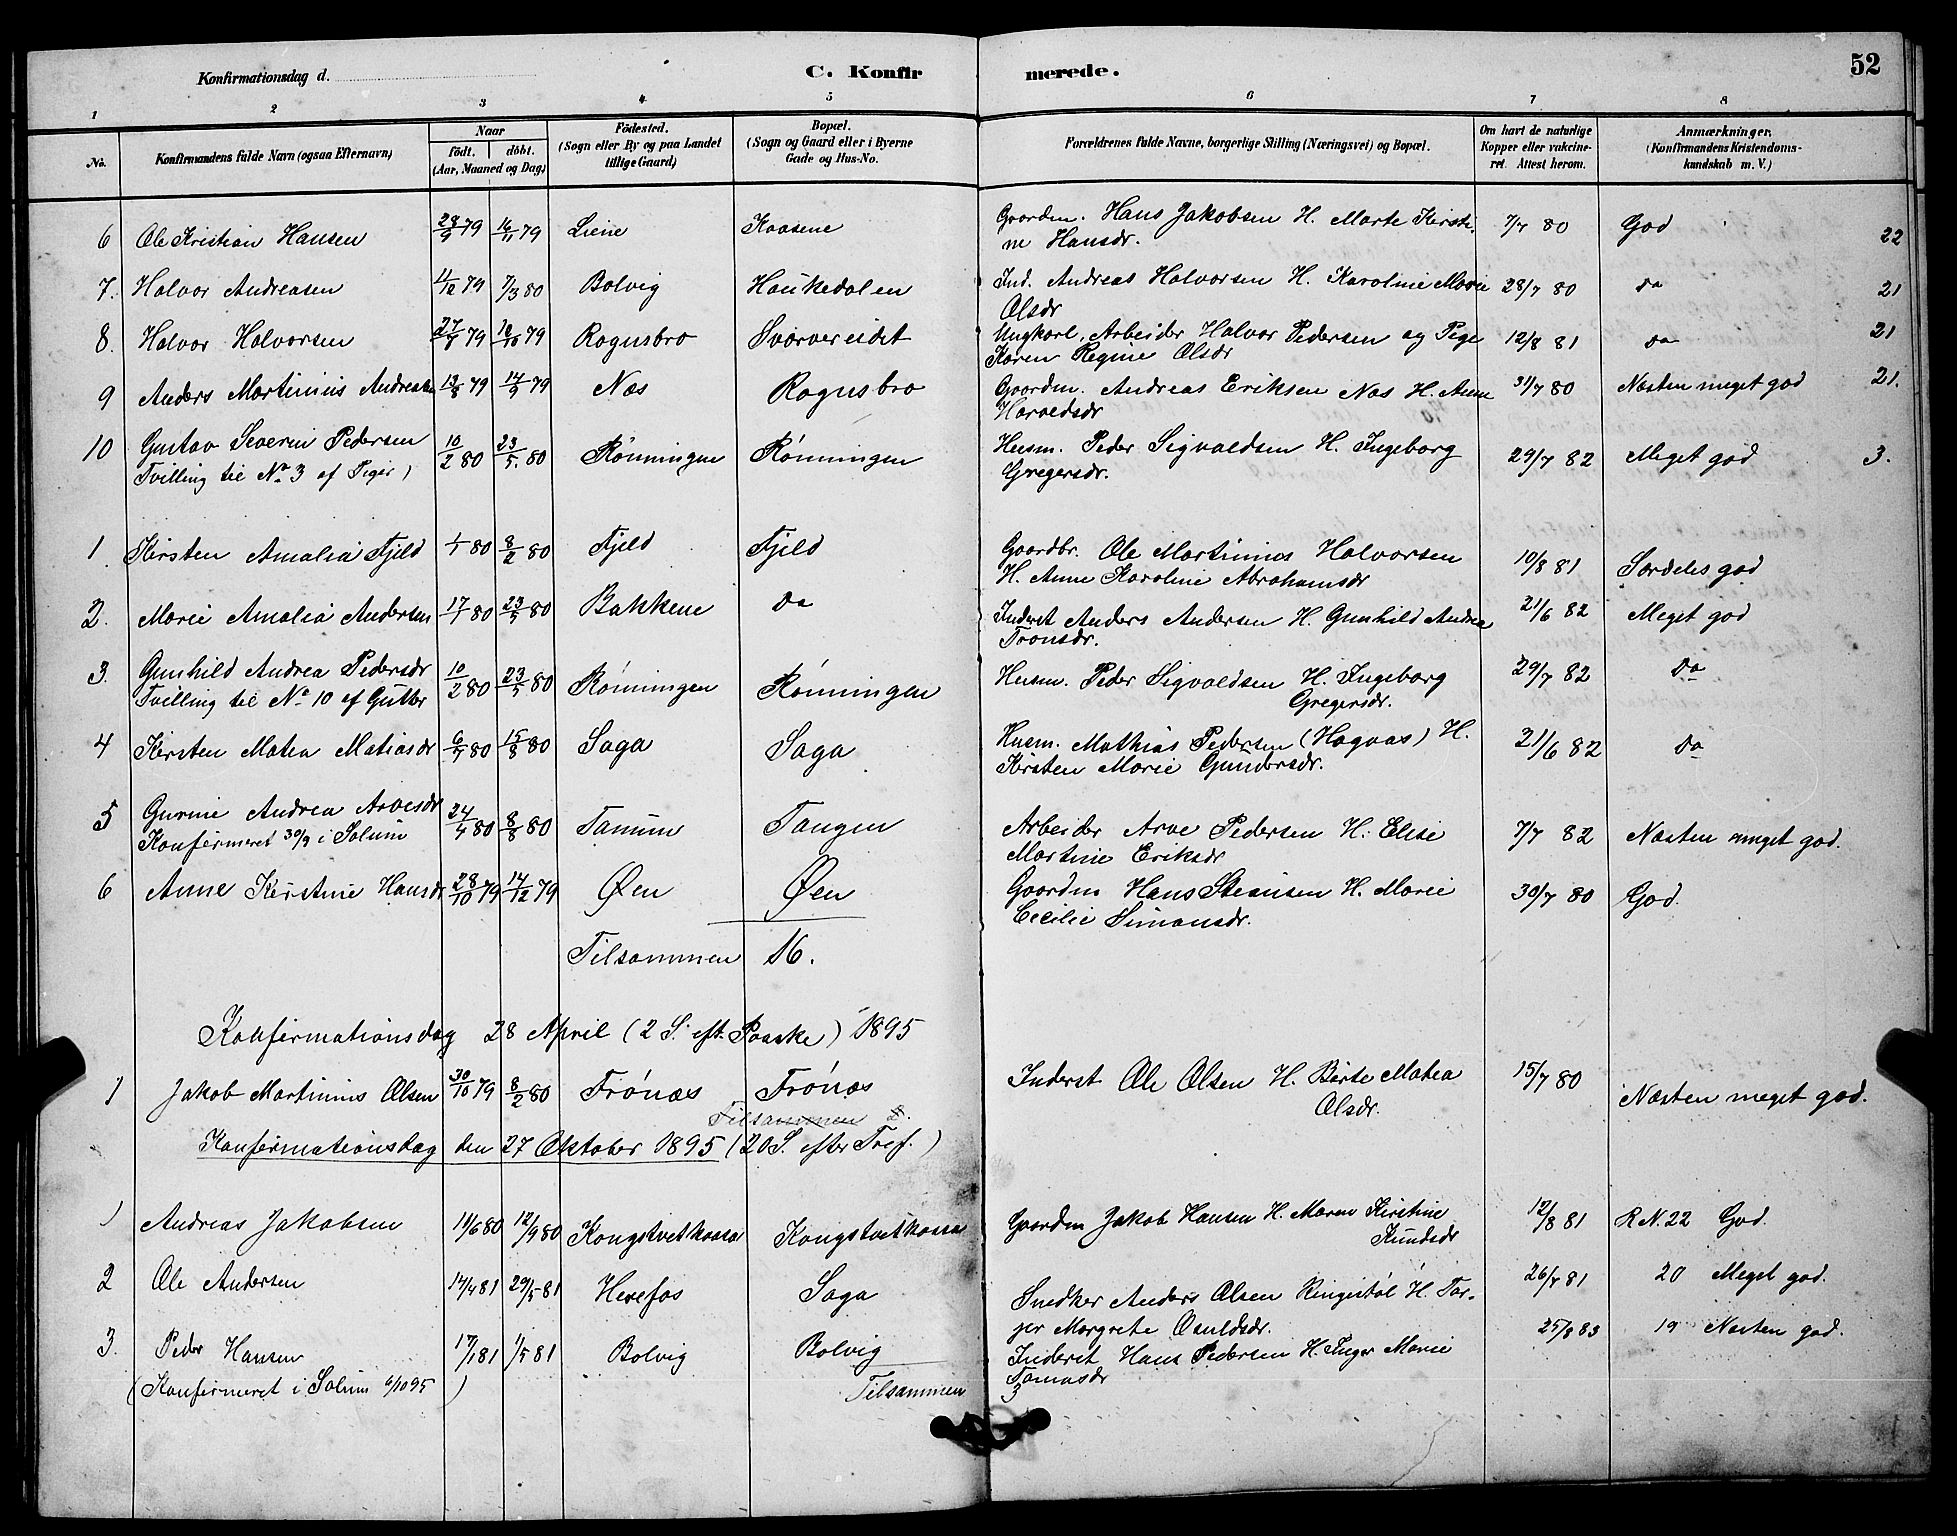 Konfirmationsdag d.
C. Konfirmerede.
52
1 2 3 4 5 6 7 8
No.
Konfirmandens fulde Navn (ogsaa Efternavn)
Naar
födt. döbt.
(Aar, Maaned og Dag)
Födested.
(Sogn eller By og paa Landet
tillige Gaard)
Bopæl.
(Sogn og Gaard eller i Byerne
Gade og Hus-No.
Forældrenes fulde Navne, borgerlige Stilling (Næringsvei) og Bopæl.
Om havt de naturlige
Kopper eller vakcine-
ret. Attest herom.
Anmærkninger.
(Konfirmandens Kristendoms-
kundskab m. V.)
6 Ole Kristian Hansen 28/9 79 16/11 79 Liene Kaasene Gaardm. Hans Jakobsen H. Marte Kirsti- 7/7 80 God 22
ne Hansdr.
7. Halvor Andreasen 4/12 79 7/3 80 Bolvig Haukedalen Ind. Andreas Halvorsen H. Karoline Marie 28/7 80 Do 21
Olsdr
8. Halvor Halvorsen 79 79 Rognsbro Svarvereidet Ungkarl, Arbeider Halvor Pedersen og Pige 12/8 81 Do 21
Karen Regine Olsdr
9 Anders Martinius Andreasen 13/8 79 14/9 79 Næs Rognsbro Gaardm. Andreas Eriksen Næs H. Anne 31/7 80 Næsten meget god 21.
Haraldsdr
10 Gustav Severin Pedersen 10/2 80 23/5 80 Rönningen Rönningen Husm. Peder Sigvaldsen H. Ingeborg 29/7 82 Meget god 3.
Tvilling til No. 3 af Piger) Gregersdr.
1. Kirsten Amalia Fjeld 1/1 80 8/2 80 Fjeld Fjeld Gaardbr. Ole Martinius Halvorsen 10/8 81 Særdeles god
H. Anne Karoline Abrahamsdr
2. Marie Amalia Andersen 17/1 80 23/5 80 Bakkene Do Inderst Anders Andersen H. Gunhild Andrea 21/6 82 Meget god
Tronsdr.
3. Gunhild Andrea Pedersdr 10/2 80 23/5 80 Rönningen Rönningen Husm. Peder Sigvaldsen H. Ingeborg 29/7 82 Do
Tvilling til No. 10 af Gutter Gregersdr.
4 Kirsten Matea Matiasdr 80 15/8 80 Saga Saga Husm. Mathias Pedersen (Hagaas) H. 21/6 82 Do
Kirsten Marie Gundersdr.
5 Gurine Andrea Arvesdr 24/4 80 8/8 80 Tanum Tangen Arbeider Arve Pedersen H. Elise 7/7 82 Næsten meget god.
Konfirmeret 30/9 i Solum Martine Eriksdr
6 Anne Kirstine Hansdr 28/10 79 14/12 79 Øen Øen Gaardm Hans Steansen H. Marie 30/7 80 God.
Cecilie Simonsdr.
Tilsammen 16.
Konfirmationsdag 28 April (2 S. eft. Paaske) 1895
1 Jakob Martinius Olsen 30/10 79 8/2 80 Frönæs Frönæs Inderst Ole Olsen H. Birte Matea 15/7 80 Næsten meget god.
Olsdr.
Tilsammen
Konfirmationsdag den 27 Oktober 1895 (20 S. efter Tref.)
1 Andreas Jakobsen 11/6 80 12/9 80 Kongstvetkaasa Kongstvetkaasa Gaardm Jakob Hansen H. Maren Kirstine 12/8 81 R N. 22 God.
Knudsdr
2 Ole Andersen 14/4 81 29/5 81 Herefos Saga Snedker Anders Olsen Ringestöl H. Tar- 26/7 81 20 Meget god.
jer Margrete Osuldsdr.
3. Peder Hansen 17/1 81 1/5 81 Bolvig Bolvig Inderst Hans Pedersen H. Inger Marie 25/8 83 19 Næsten god.
Tomasdr
(Konfirmeret i Solum 6/10 95) Tilsammen 3